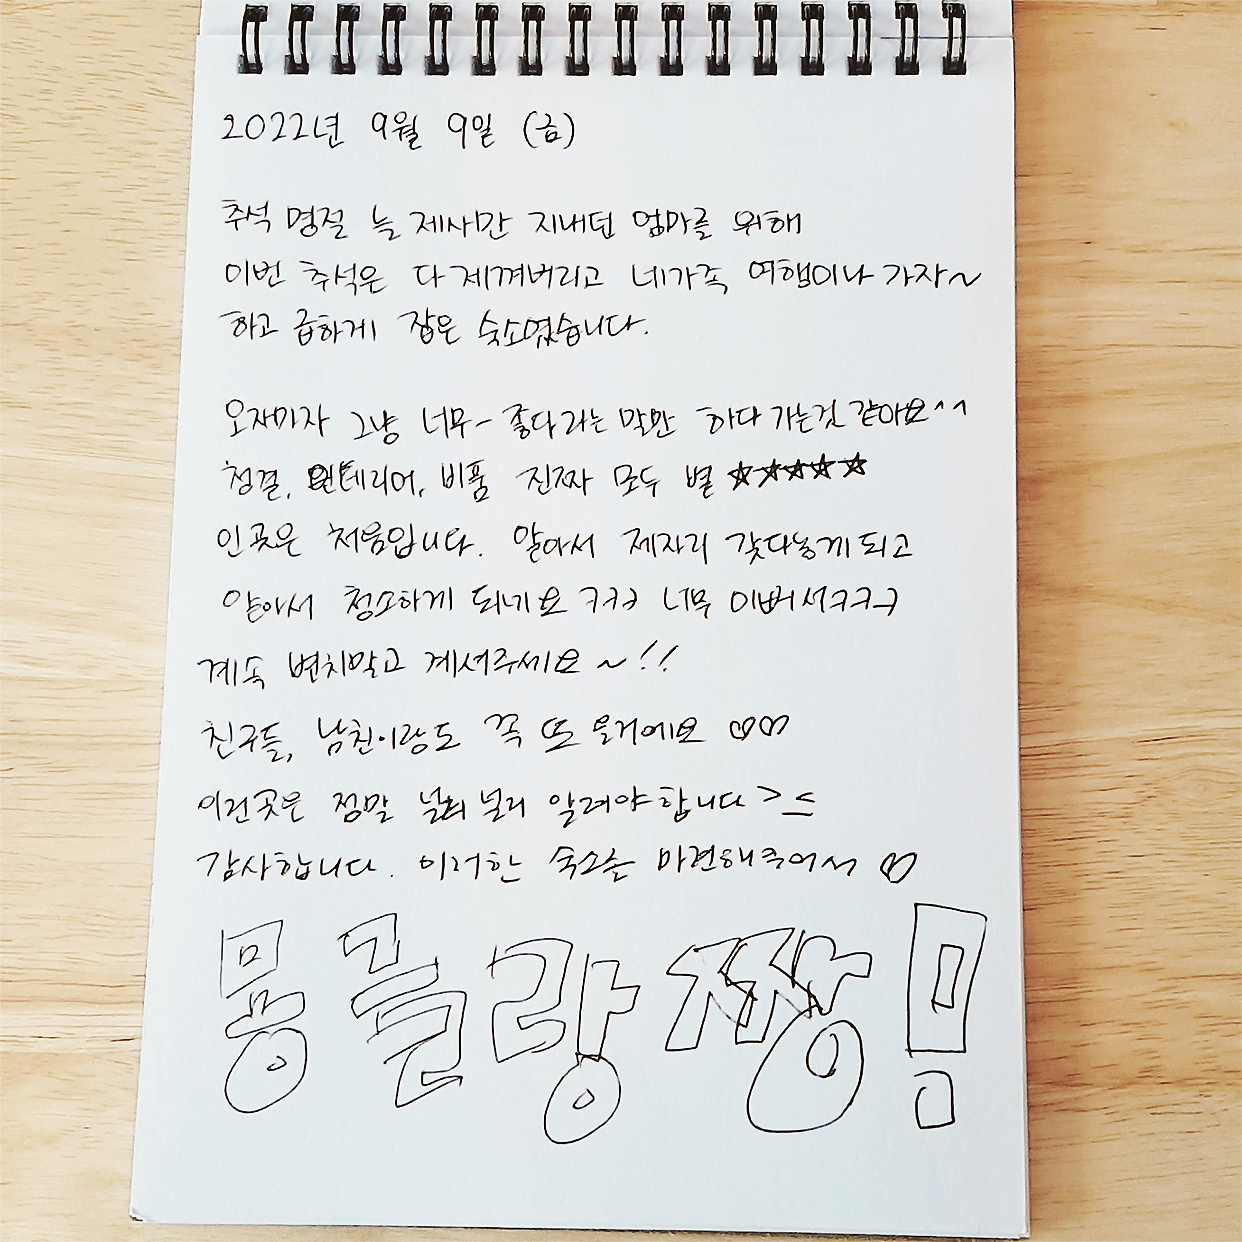 2022년 9월 9일 (금)
추석 명절 늘 제사만 지내던 엄마를 위해
이번 추석은 다 제껴버리고 네가족 여행이나 가자~
하고 급하게 잡은 숙소였습니다.
오자마자 그냥 너무~ 좋다라는 말만 하다 가는것 같아요^^
청결, 인테리어, 비품 진짜 모두 별 ★★★★★
인곳은 처음입니다. 알아서 제자리 갖다놓게 되고
알아서 청소하게 되네요 ㅋㅋㅋ 너무 이뻐서ㅋㅋㅋ
계속 변치말고 계셔주세요~!!
친구들, 남친이랑도 꼭 또 올거에요 ♡♡
이런곳은 정말 널리 널리 알려야합니다 >_<
감사합니다. 이러한 숙소를 마련해주어서 ♡
몽클랑 짱!